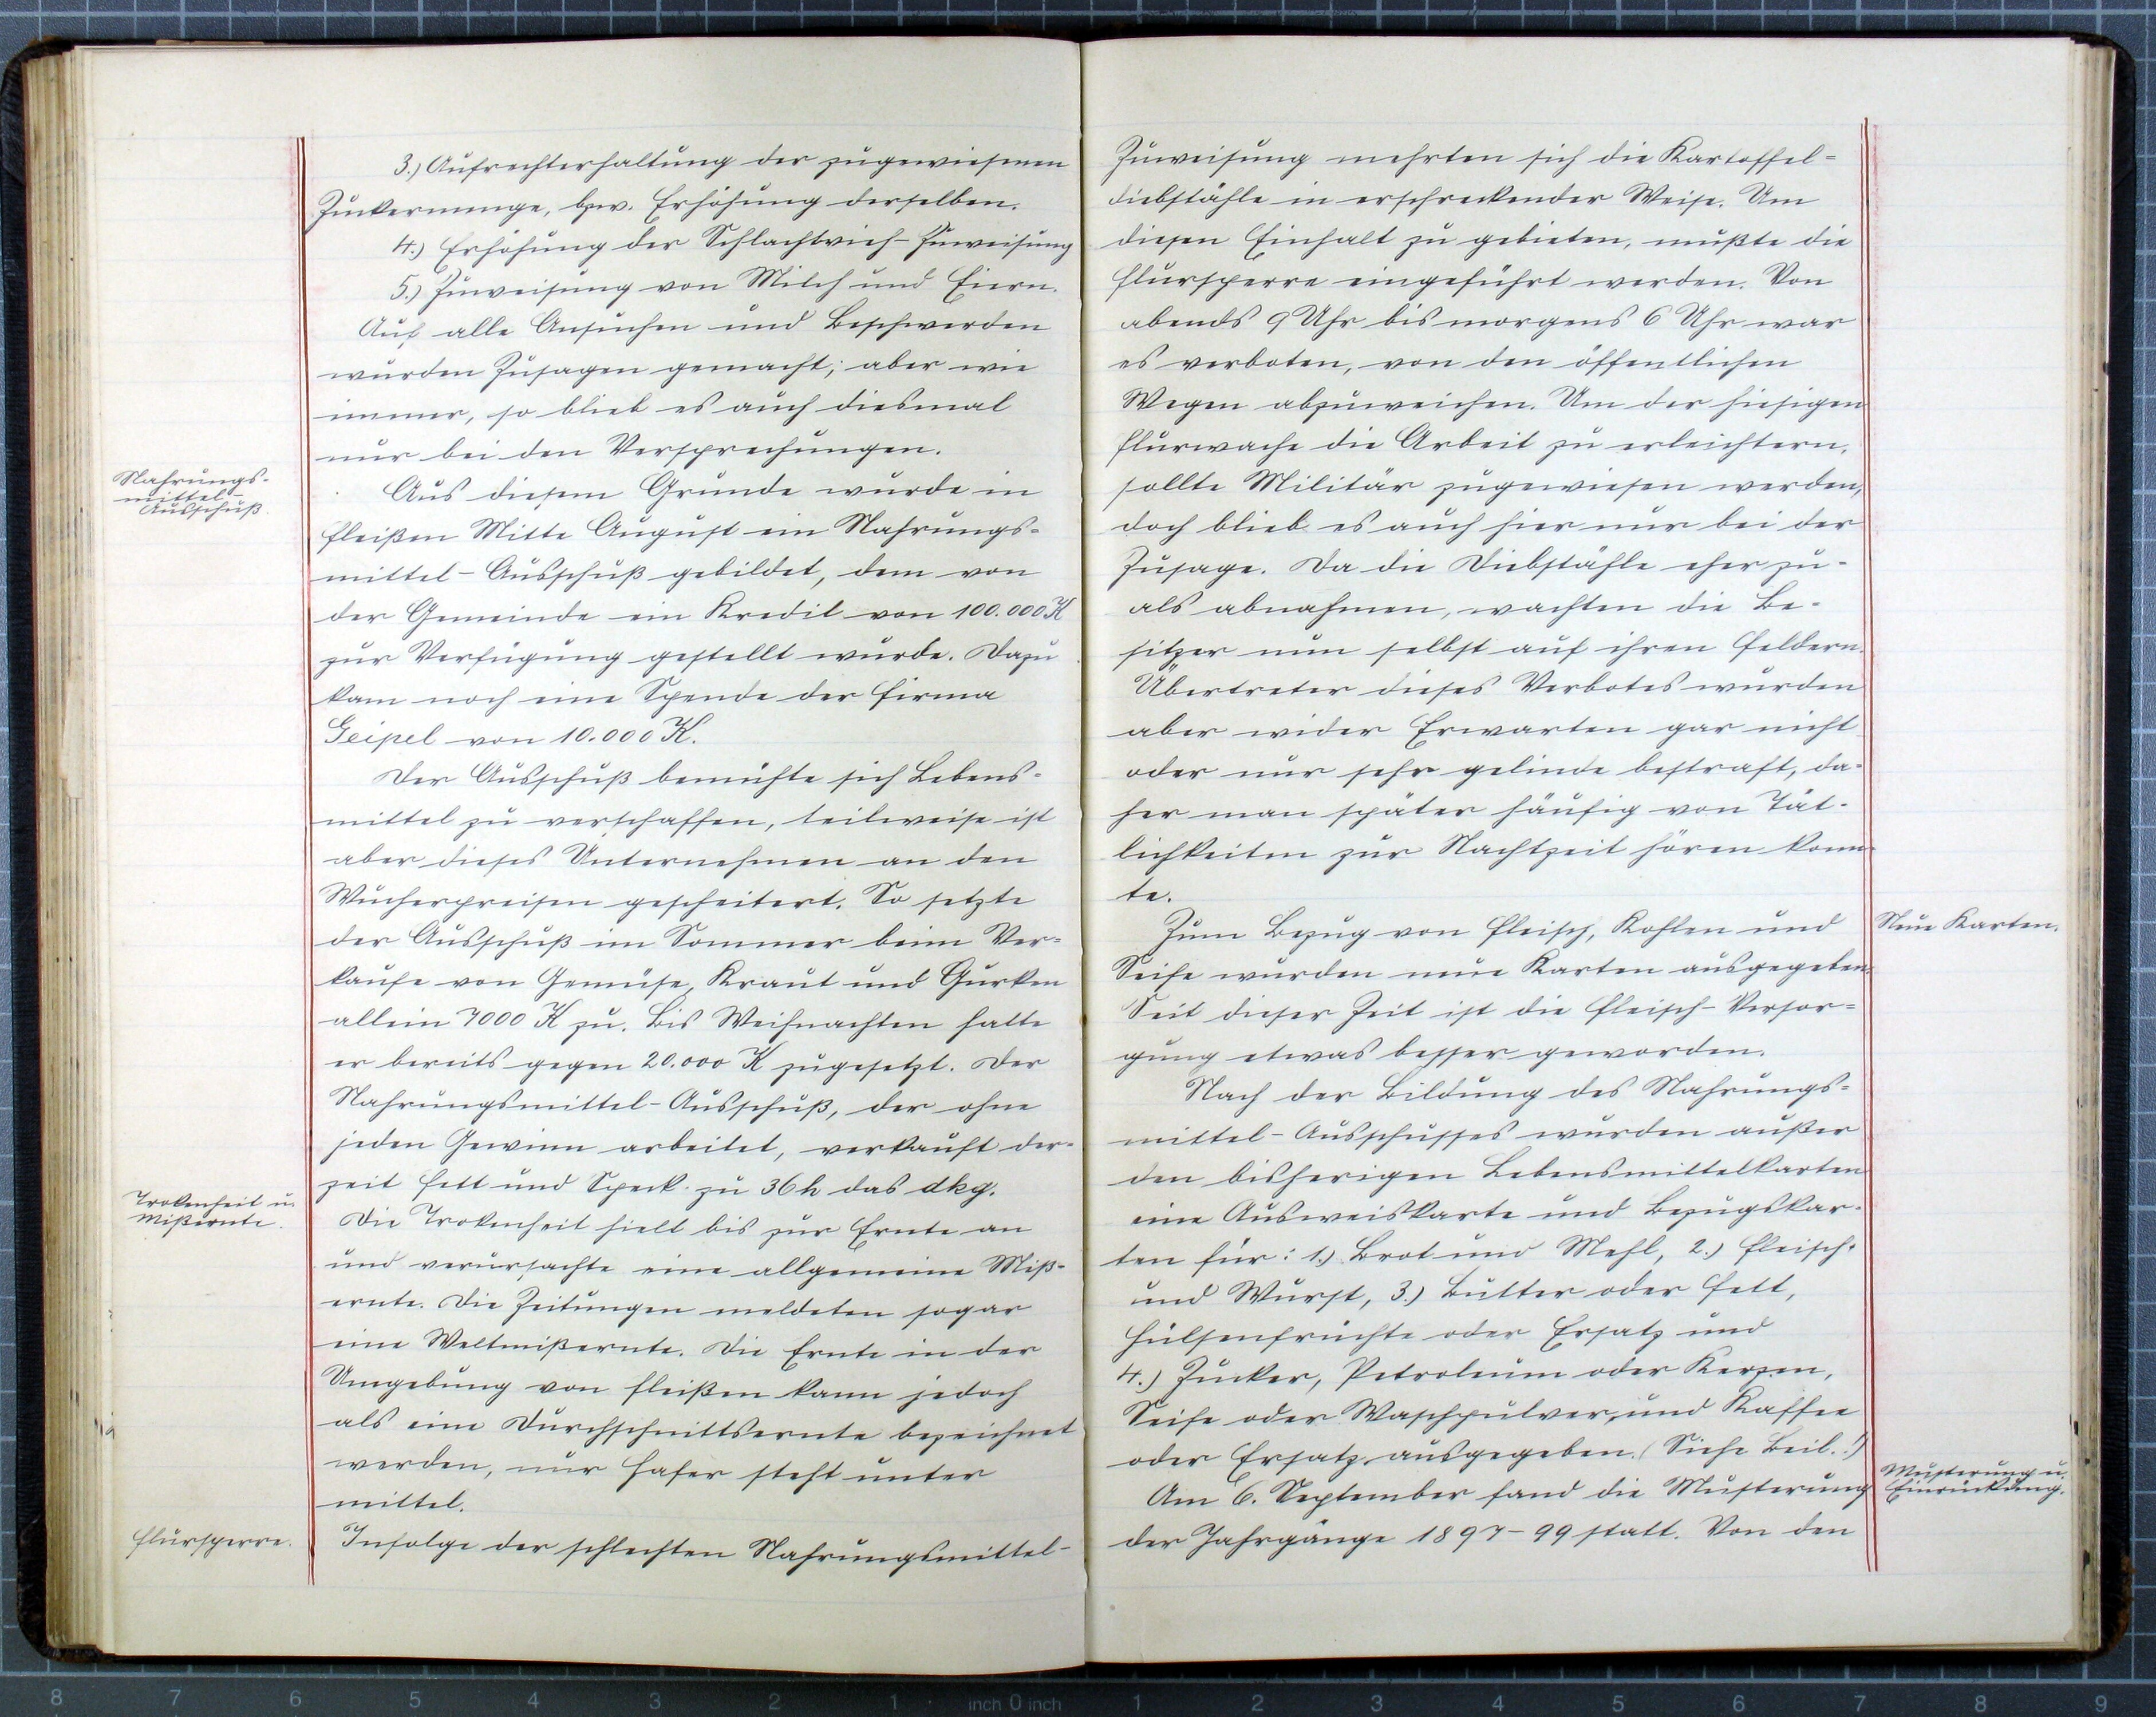 3.) Aufrechterhaltung der zugewiesenen
Zuckermenge, bzw. Erhöhung derselben.
4.) Erhöhung der Schlachtvieh-Zuweisung
5.) Zuweisung von Milch und Eiern.
Auf alle Ansuchen und Beschwerden
wurden Zusagen gemacht; aber wie
immer, so blieb es auch diesmal
nur bei den Versprechungen.
Nahrungs-
mittel-
Ausschuß.
Aus diesem Grunde wurde in
Fleißen Mitte August ein Nahrungs-
mittel-Ausschuß gebildet, dem von
der Gemeinde ein Kredit von 100.000 K
zur Verfügung gestellt wurde. Dazu
kam noch eine Spende der Firma
Geipel von 10.000 K.
Der Ausschuß bemühte sich Lebens-
mittel zu verschaffen, teilweise ist
aber dieses Unternehmen an den
Wucherpreisen gescheitert. So setzte
der Ausschuß im Sommer beim Ver-
kaufe von Gemüse, Kraut und Gurken
allein 7000 K zu. Bis Weihnachten hatte
er bereits gegen 20.000 K zugesetzt. Der
Nahrungsmittel-Ausschuß, der ohne
jeden Gewinn arbeitet, verkauft der-
zeit Fett und Speck zu 36 h das dkg.
Trokenheit u.
Mißernte.
Die Trokenheit hielt bis zur Ernte an
und verursachte eine allgemeine Miß-
ernte. Die Zeitungen meldeten sogar
eine Weltmißernte. Die Ernte in der
Umgebung von Fleißen kann jedoch
als eine Durchschnittsernte bezeichnet
werden, nur Hafer steht unter
mittel.
Flursperre.
Infolge der schlechten Nahrungsmittel-
Zuweisung mehrten sich die Kartoffel-
diebstähle in erschreckender Weise. Um
diesen Einhalt zu gebieten, mußte die
Flursperre eingeführt werden. Von
abends 9 Uhr bis morgens 6 Uhr war
es verboten, von den öffentlichen
Wegen abzuweichen. Um der hiesigen
Flurwache die Arbeit zu erleichtern,
sollte Militär zugewiesen werden,
doch blieb es auch hier nur bei der
Zusage. Da die Diebstähle eher zu-
als abnahmen, wachten die Be-
sitzer nun selbst auf ihren Feldern.
Übertreter dieses Verbotes wurden
aber wider Erwarten gar nicht
oder nur sehr gelinde bestraft, da-
her man später häufig von Tät-
lichkeiten zur Nachtzeit hören konn-
te.
Zum Bezug von Fleisch, Kohlen und
Neue Karten.
Seife wurden neue Karten ausgegeben.
Seit dieser Zeit ist die Fleisch-Versor-
gung etwas besser geworden.
Nach der Bildung des Nahrungs-
mittel-Ausschusses wurden außer
den bisherigen Lebensmittelkarten
eine Ausweiskarte und Bezugskar-
ten für: 1.) Brot und Mehl, 2.) Fleisch-
und Wurst, 3.) Butter oder Fett,
Hülsenfrüchte oder Ersatz und
4.) Zucker, Petroleum oder Kerzen,
Seife oder Waschpulver, und Kaffee
oder Ersatz ausgegeben. (Siehe Beil.!)
Musterung u.
Einrückung.
Am 6. September fand die Musterung
der Jahrgänge 1897-99 statt. Von den
8 7 6 5 4 3 2 1 inch 0 inch 1 2 3 4 5 6 7 8 9